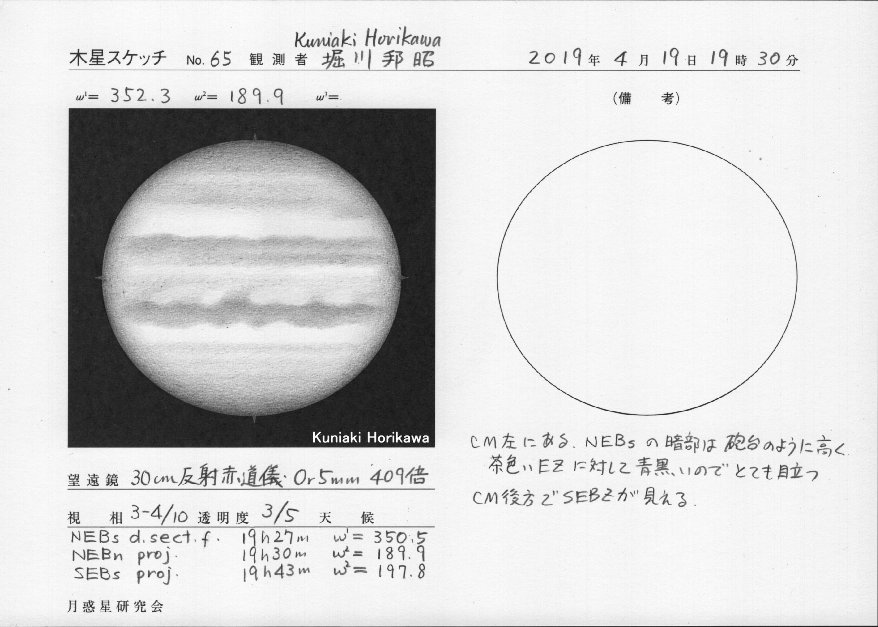 Kuniaki Horikawa
木星スケッチ No. 65 観測者 堀川邦昭 2019年 4月 19日 19時 30分
ω¹= 352.3 ω²= 189.9 ω³=
(備 考)
Kuniaki Horikawa
CM左にある NEBs の暗部は 砲台のように高く、
茶色い EZ に対して 青黒いので とても目立つ
CM後方で SEBZ が 見える.
望遠鏡 30cm反射赤道儀 Or5mm 409倍
視 相 3-4/10 透明度 3/5 天 候
NEBs d.sect.f. 19h27m ω¹= 350.5
NEBn proj. 19h30m ω²= 189.9
SEBs proj. 19h43m ω²= 197.8
月惑星研究会